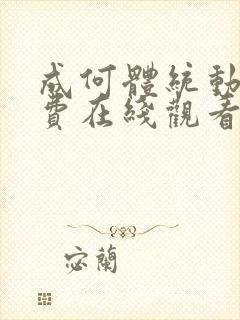 成何體統動
費在綫觀看
宓蘭